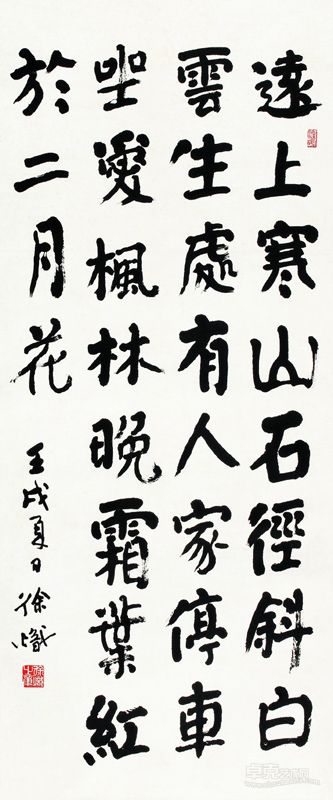 遠上寒山石徑斜白
雲生處有人家停車
坐愛楓林晚霜葉紅
於二月花
壬戌夏日徐
卓克艺术网